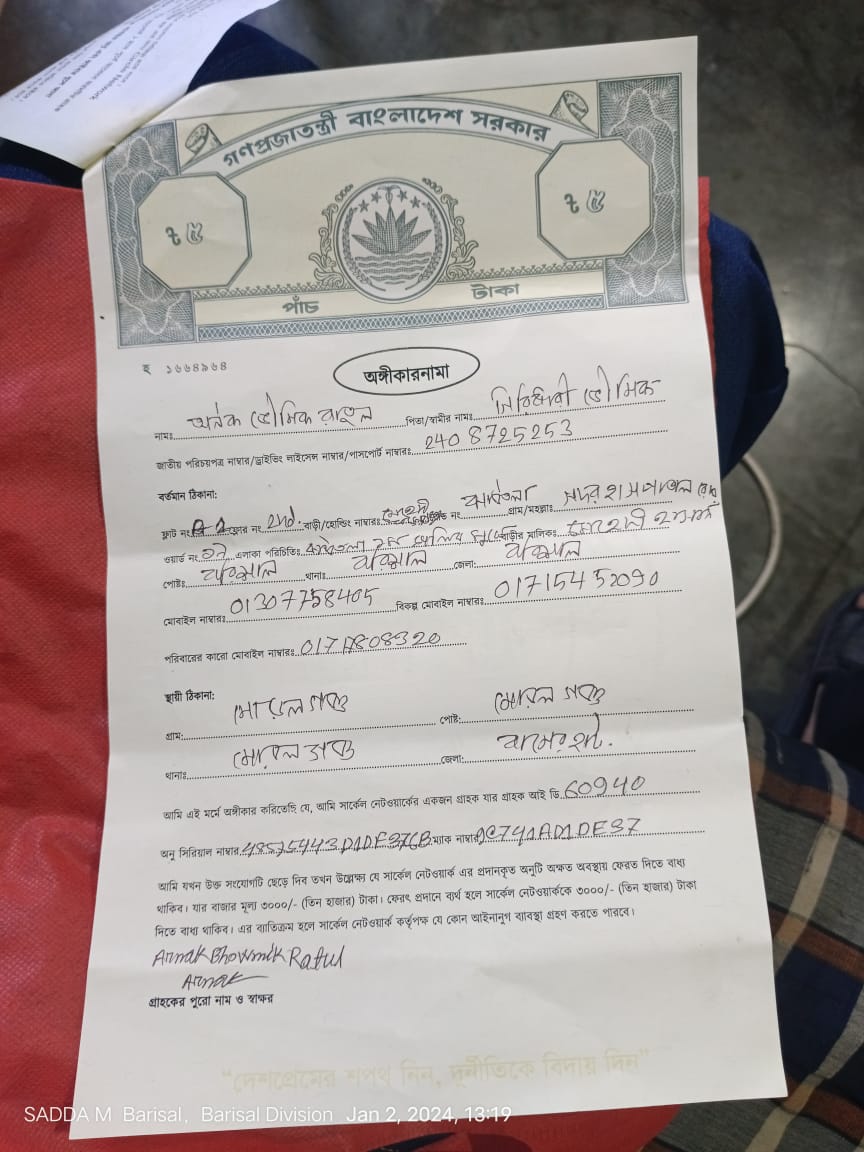 গণপ্রজাতন্ত্রী বাংলাদেশ সরকার
৳ ৫ ৳ ৫
পাঁচ টাকা
হ ১৬৬৪৯৬৪
অঙ্গীকারনামা
নামঃ অর্নক ভৌমিক রাতুল পিতা/স্বামীর নামঃ ভৌমিক
জাতীয় পরিচয়পত্র নাম্বার/ড্রাইভিং লাইসেন্স নাম্বার/পাসপোর্ট নাম্বারঃ 240 8725253
বর্তমান ঠিকানা:
ফ্লাট নং ফ্লোর নং 2nd. বাড়ী/হোল্ডিং নাম্বারঃ নং গ্রাম/মহল্লাঃ সদর হাসপাতাল
ওয়ার্ড নং এলাকা পরিচিতিঃ বাড়ীর মালিকঃ
পোষ্টঃ বরিশাল থানাঃ বরিশাল জেলা: বরিশাল
মোবাইল নাম্বারঃ 01307758405 বিকল্প মোবাইল নাম্বারঃ 01715452090
পরিবারের কারো মোবাইল নাম্বারঃ
স্থায়ী ঠিকানা:
গ্রাম: মোরেলগঞ্জ পোষ্ট: মোরেলগঞ্জ
থানাঃ মোরেলগঞ্জ জেলা: বাগেরহাট.
আমি এই মর্মে অঙ্গীকার করিতেছি যে, আমি সার্কেল নেটওয়ার্কের একজন গ্রাহক যার গ্রাহক আই ডি 60940
অনু সিরিয়াল নাম্বার ম্যাক নাম্বার
আমি যখন উক্ত সংযোগটি ছেড়ে দিব তখন উল্লেক্ষ্য যে সার্কেল নেটওয়ার্ক এর প্রদানকৃত অনুটি অক্ষত অবস্থায় ফেরত দিতে বাধ্য
থাকিব। যার বাজার মূল্য ৩০০০/- (তিন হাজার) টাকা। ফেরৎ প্রদানে ব্যর্থ হলে সার্কেল নেটওয়ার্ককে ৩০০০/- (তিন হাজার) টাকা
দিতে বাধ্য থাকিব। এর ব্যতিক্রম হলে সার্কেল নেটওয়ার্ক কর্তৃপক্ষ যে কোন আইনানুগ ব্যবস্থা গ্রহণ করতে পারবে।
Arnak Bhowmik Ratul
Arnak
গ্রাহকের পুরো নাম ও স্বাক্ষর
“দেশপ্রেমের শপথ নিন, দুর্নীতিকে বিদায় দিন”
SADDA M Barisal, Barisal Division Jan 2, 2024, 13:19